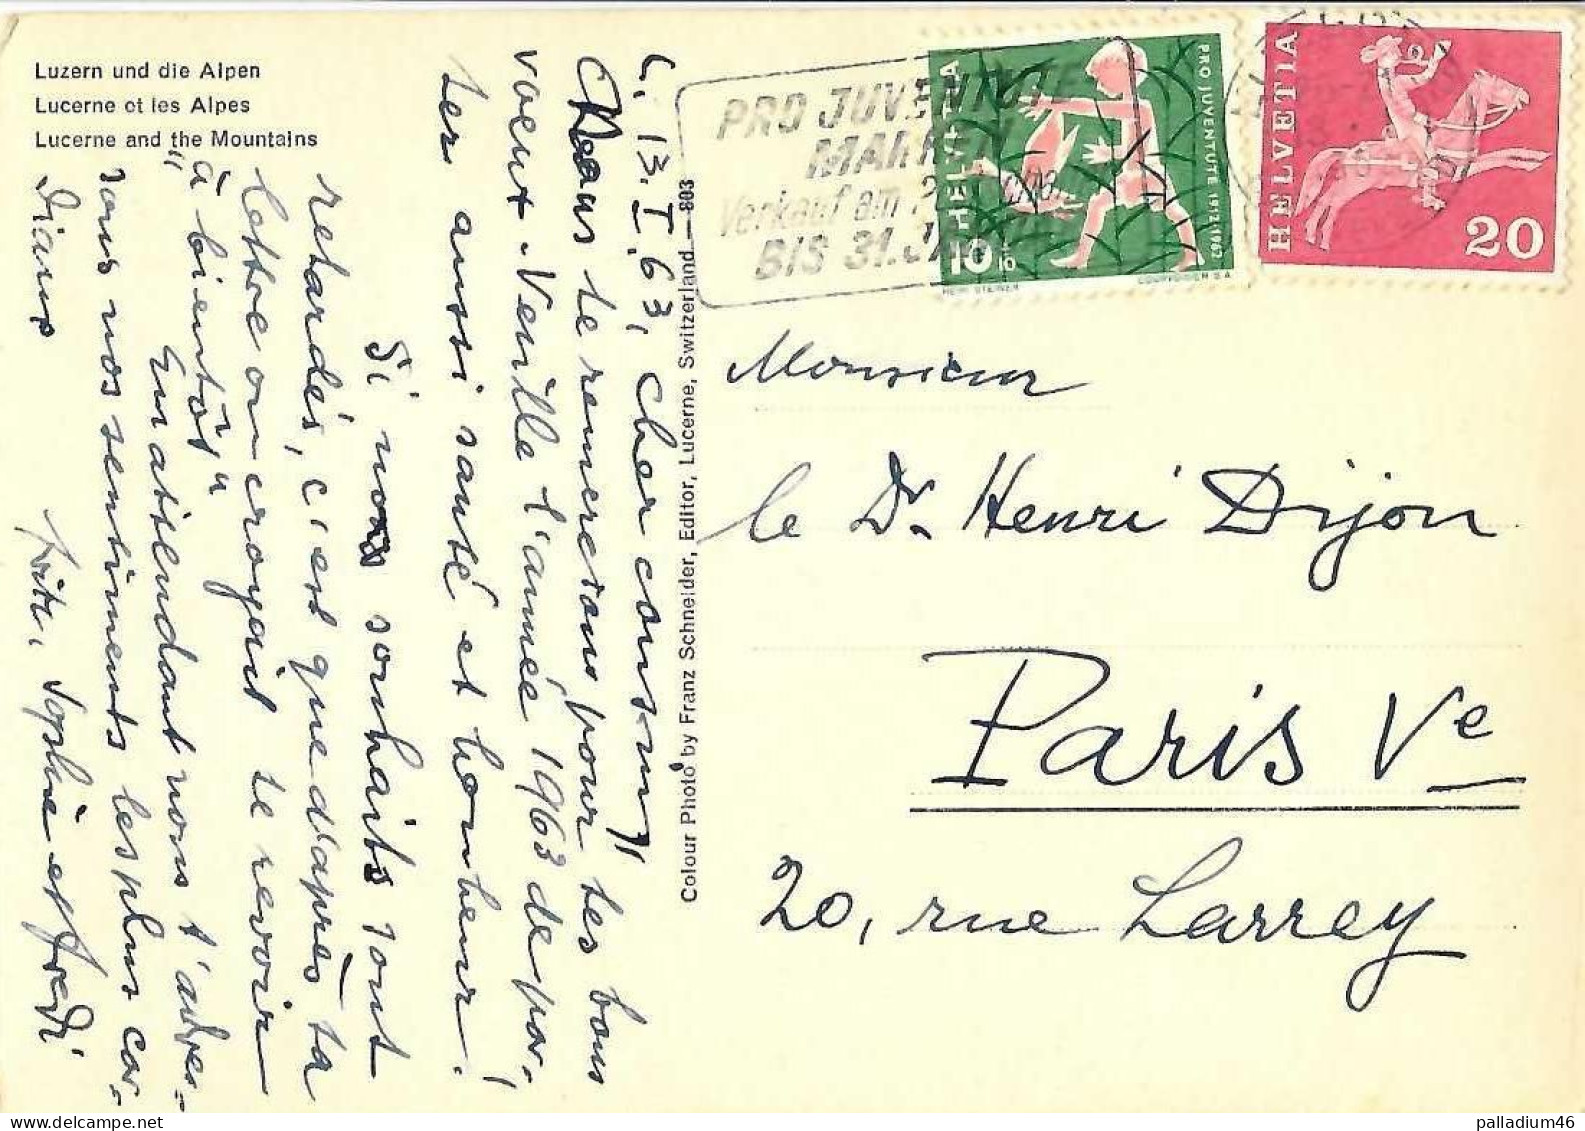 Luzern und die Alpen
Lucerne et les Alpes
Lucerne and the Mountains
L. 13.I.63, Cher cousin,
Nous te remercions pour tes bons
voeux. Veuille l'année 1963 de por-
ter aussi santé et bonheur!
Si nos souhaits sont
retardés, c'est que d'après ta
lettre on croyait te revoir
"à bientôt"
En attendant nous t'adres-
sons nos sentiments les plus cor-
diaux
Fritz, Sophie et Fredi
Colour Photo by Franz Schneider, Editor, Lucerne, Switzerland — 803
PRO JUVENTUTE
MARKEN
Verkauf am
BIS 31. JA
HELVETIA
10
PRO JUVENTUTE 1912/1962
COURVOISIER S.A.
HELVETIA
20
Monsieur
le Dr. Henri Dijon
Paris Ve
20, rue Larrey
palladium46